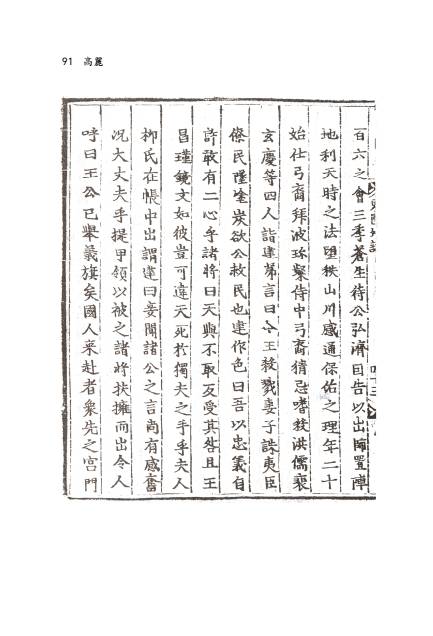 91 高麗
百六之會三季蒼生待公弘濟因告以出師置陣
地利天時之法望秩山川感通保佑之理年二十
始仕弓裔拜波珍粲侍中弓裔猜忌嗜殺洪儒裵
玄慶等四人詣建第言曰今王殺戮妻子誅夷臣
僚民墜塗炭欲公救民也建作色曰吾以忠義自
許敢有二心乎諸將曰天與不取反受其咎且王
昌瑾鏡文如彼豈可違天死於獨夫之手乎夫人
柳氏在帳中出謂建曰妾聞諸公之言尚有感奮
況大丈夫乎提甲領以被之諸將扶擁而出令人
呼曰王公已擧義旗矣國人來赴者衆先之宮門